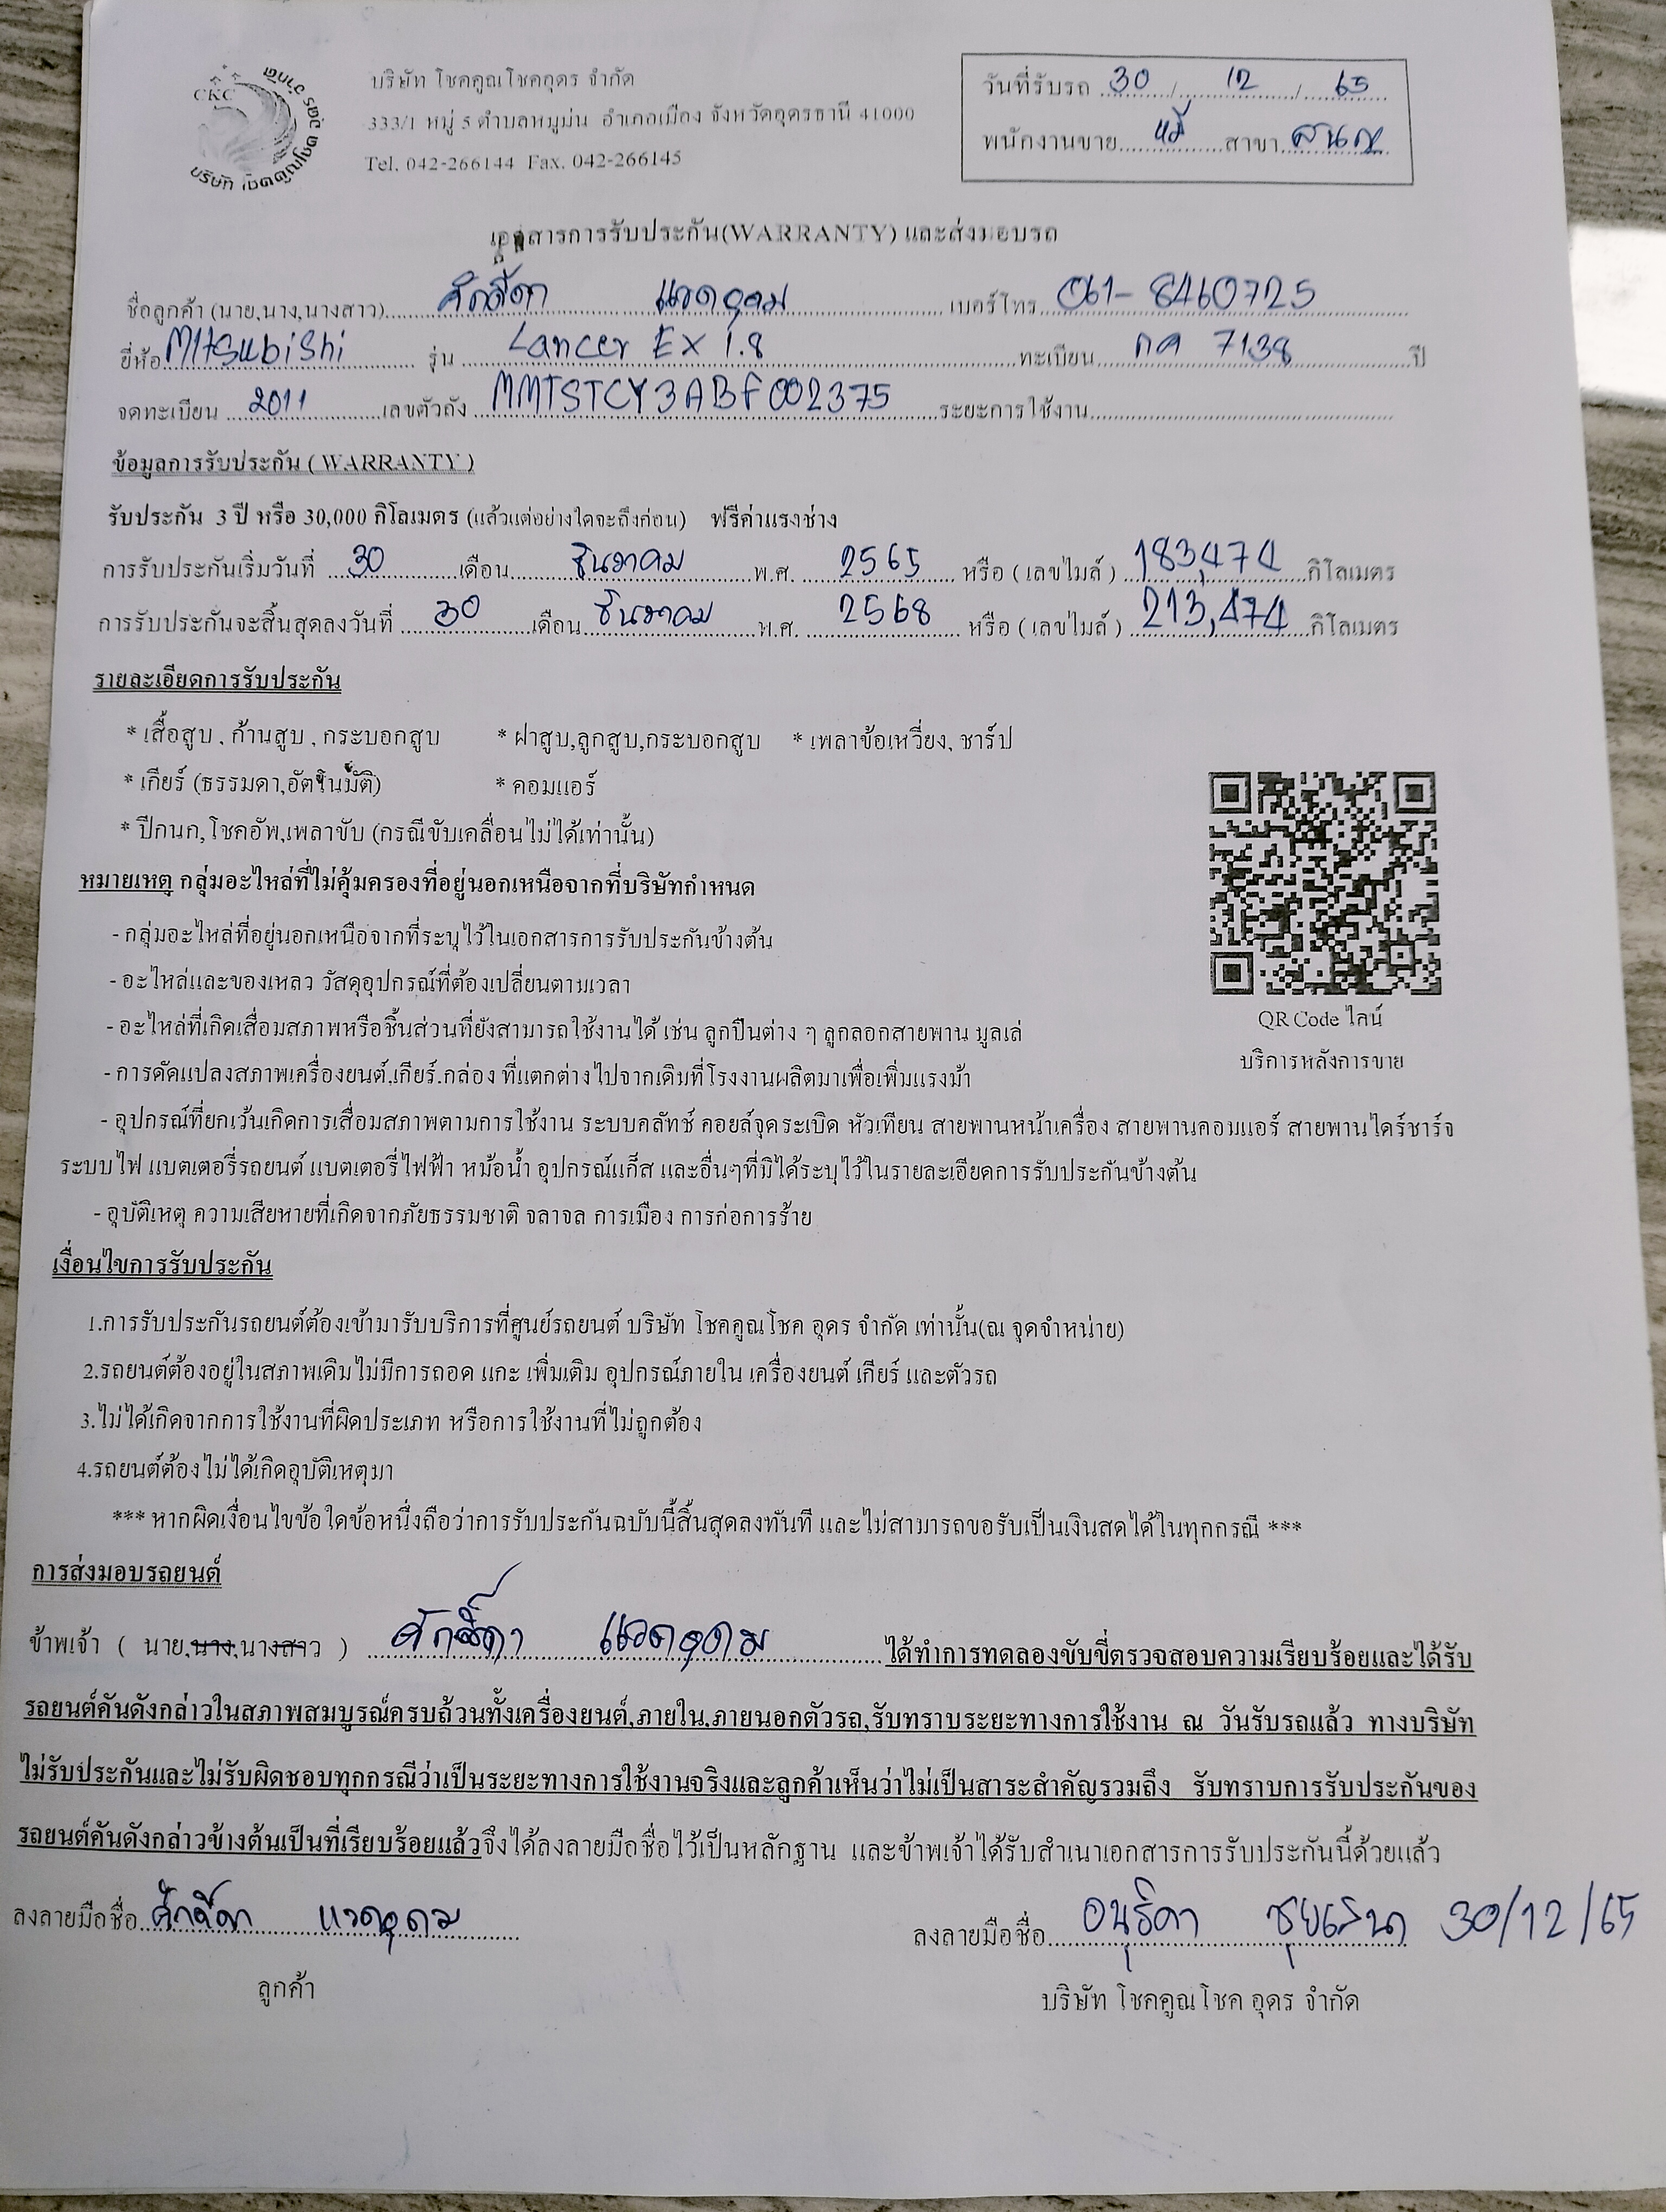 CKC
บริษัท โชคคูณโชค อุดร จำกัด
บริษัท โชคคูณโชคอุดร จำกัด
333/1 หมู่ 5 ตำบลหมูม่น อำเภอเมือง จังหวัดอุดรธานี 41000
Tel. 042-266144 Fax. 042-266145
วันที่รับรถ 30 / 12 / 65
พนักงานขาย สาขา
เอกสารการรับประกัน(WARRANTY) และส่งมอบรถ
ชื่อลูกค้า (นาย,นาง,นางสาว) ศักดิ์ดา แวดอุดม เบอร์โทร 061-8460725
ยี่ห้อ Mitsubishi รุ่น Lancer EX 1.8 ทะเบียน กค 7138 ปี
จดทะเบียน 2011 เลขตัวถัง MMTSTCY3ABF002375 ระยะการใช้งาน
ข้อมูลการรับประกัน ( WARRANTY )
รับประกัน 3 ปี หรือ 30,000 กิโลเมตร (แล้วแต่อย่างใดจะถึงก่อน) ฟรีค่าแรงช่าง
การรับประกันเริ่มวันที่ 30 เดือน ธันวาคม พ.ศ. 2565 หรือ ( เลขไมล์ ) 183,474 กิโลเมตร
การรับประกันจะสิ้นสุดลงวันที่ 30 เดือน ธันวาคม พ.ศ. 2568 หรือ ( เลขไมล์ ) 213,474 กิโลเมตร
รายละเอียดการรับประกัน
* เสื้อสูบ , ก้านสูบ , กระบอกสูบ * ฝาสูบ,ลูกสูบ,กระบอกสูบ * เพลาข้อเหวี่ยง, ชาร์ป
* เกียร์ (ธรรมดา,อัตโนมัติ) * คอมแอร์
* ปีกนก,โชคอัพ,เพลาขับ (กรณีขับเคลื่อนไม่ได้เท่านั้น)
หมายเหตุ กลุ่มอะไหล่ที่ไม่คุ้มครองที่อยู่นอกเหนือจากที่บริษัทกำหนด
- กลุ่มอะไหล่ที่อยู่นอกเหนือจากที่ระบุไว้ในเอกสารการรับประกันข้างต้น
- อะไหล่และของเหลว วัสดุอุปกรณ์ที่ต้องเปลี่ยนตามเวลา
- อะไหล่ที่เกิดเสื่อมสภาพหรือชิ้นส่วนที่ยังสามารถใช้งานได้ เช่น ลูกปืนต่าง ๆ ลูกลอกสายพาน มูลเล่
- การดัดแปลงสภาพเครื่องยนต์.เกียร์.กล่อง ที่แตกต่างไปจากเดิมที่โรงงานผลิตมาเพื่อเพิ่มแรงม้า
- อุปกรณ์ที่ยกเว้นเกิดการเสื่อมสภาพตามการใช้งาน ระบบคลัทช์ คอยล์จุดระเบิด หัวเทียน สายพานหน้าเครื่อง สายพานคอมแอร์ สายพานไดร์ชาร์จ
ระบบไฟ แบตเตอรี่รถยนต์ แบตเตอรี่ไฟฟ้า หม้อน้ำ อุปกรณ์แก๊ส และอื่นๆที่มิได้ระบุไว้ในรายละเอียดการรับประกันข้างต้น
- อุบัติเหตุ ความเสียหายที่เกิดจากภัยธรรมชาติ จลาจล การเมือง การก่อการร้าย
QR Code ไลน์
บริการหลังการขาย
เงื่อนไขการรับประกัน
1.การรับประกันรถยนต์ต้องเข้ามารับบริการที่ศูนย์รถยนต์ บริษัท โชคคูณโชค อุดร จำกัด เท่านั้น(ณ จุดจำหน่าย)
2.รถยนต์ต้องอยู่ในสภาพเดิมไม่มีการถอด แกะ เพิ่มเติม อุปกรณ์ภายใน เครื่องยนต์ เกียร์ และตัวรถ
3.ไม่ได้เกิดจากการใช้งานที่ผิดประเภท หรือการใช้งานที่ไม่ถูกต้อง
4.รถยนต์ต้องไม่ได้เกิดอุบัติเหตุมา
*** หากผิดเงื่อนไขข้อใดข้อหนึ่งถือว่าการรับประกันฉบับนี้สิ้นสุดลงทันที และไม่สามารถขอรับเป็นเงินสดได้ในทุกกรณี ***
การส่งมอบรถยนต์
ข้าพเจ้า ( นาย,นาง,นางสาว ) ศักดิ์ดา แวดอุดม ได้ทำการทดลองขับขี่ตรวจสอบความเรียบร้อยและได้รับ
รถยนต์คันดังกล่าวในสภาพสมบูรณ์ครบถ้วนทั้งเครื่องยนต์,ภายใน,ภายนอกตัวรถ,รับทราบระยะทางการใช้งาน ณ วันรับรถแล้ว ทางบริษัท
ไม่รับประกันและไม่รับผิดชอบทุกกรณีว่าเป็นระยะทางการใช้งานจริงและลูกค้าเห็นว่าไม่เป็นสาระสำคัญรวมถึง รับทราบการรับประกันของ
รถยนต์คันดังกล่าวข้างต้นเป็นที่เรียบร้อยแล้วจึงได้ลงลายมือชื่อไว้เป็นหลักฐาน และข้าพเจ้าได้รับสำเนาเอกสารการรับประกันนี้ด้วยแล้ว
ลงลายมือชื่อ ศักดิ์ดา แวดอุดม ลงลายมือชื่อ อนุธิดา 30/12/65
ลูกค้า บริษัท โชคคูณโชค อุดร จำกัด